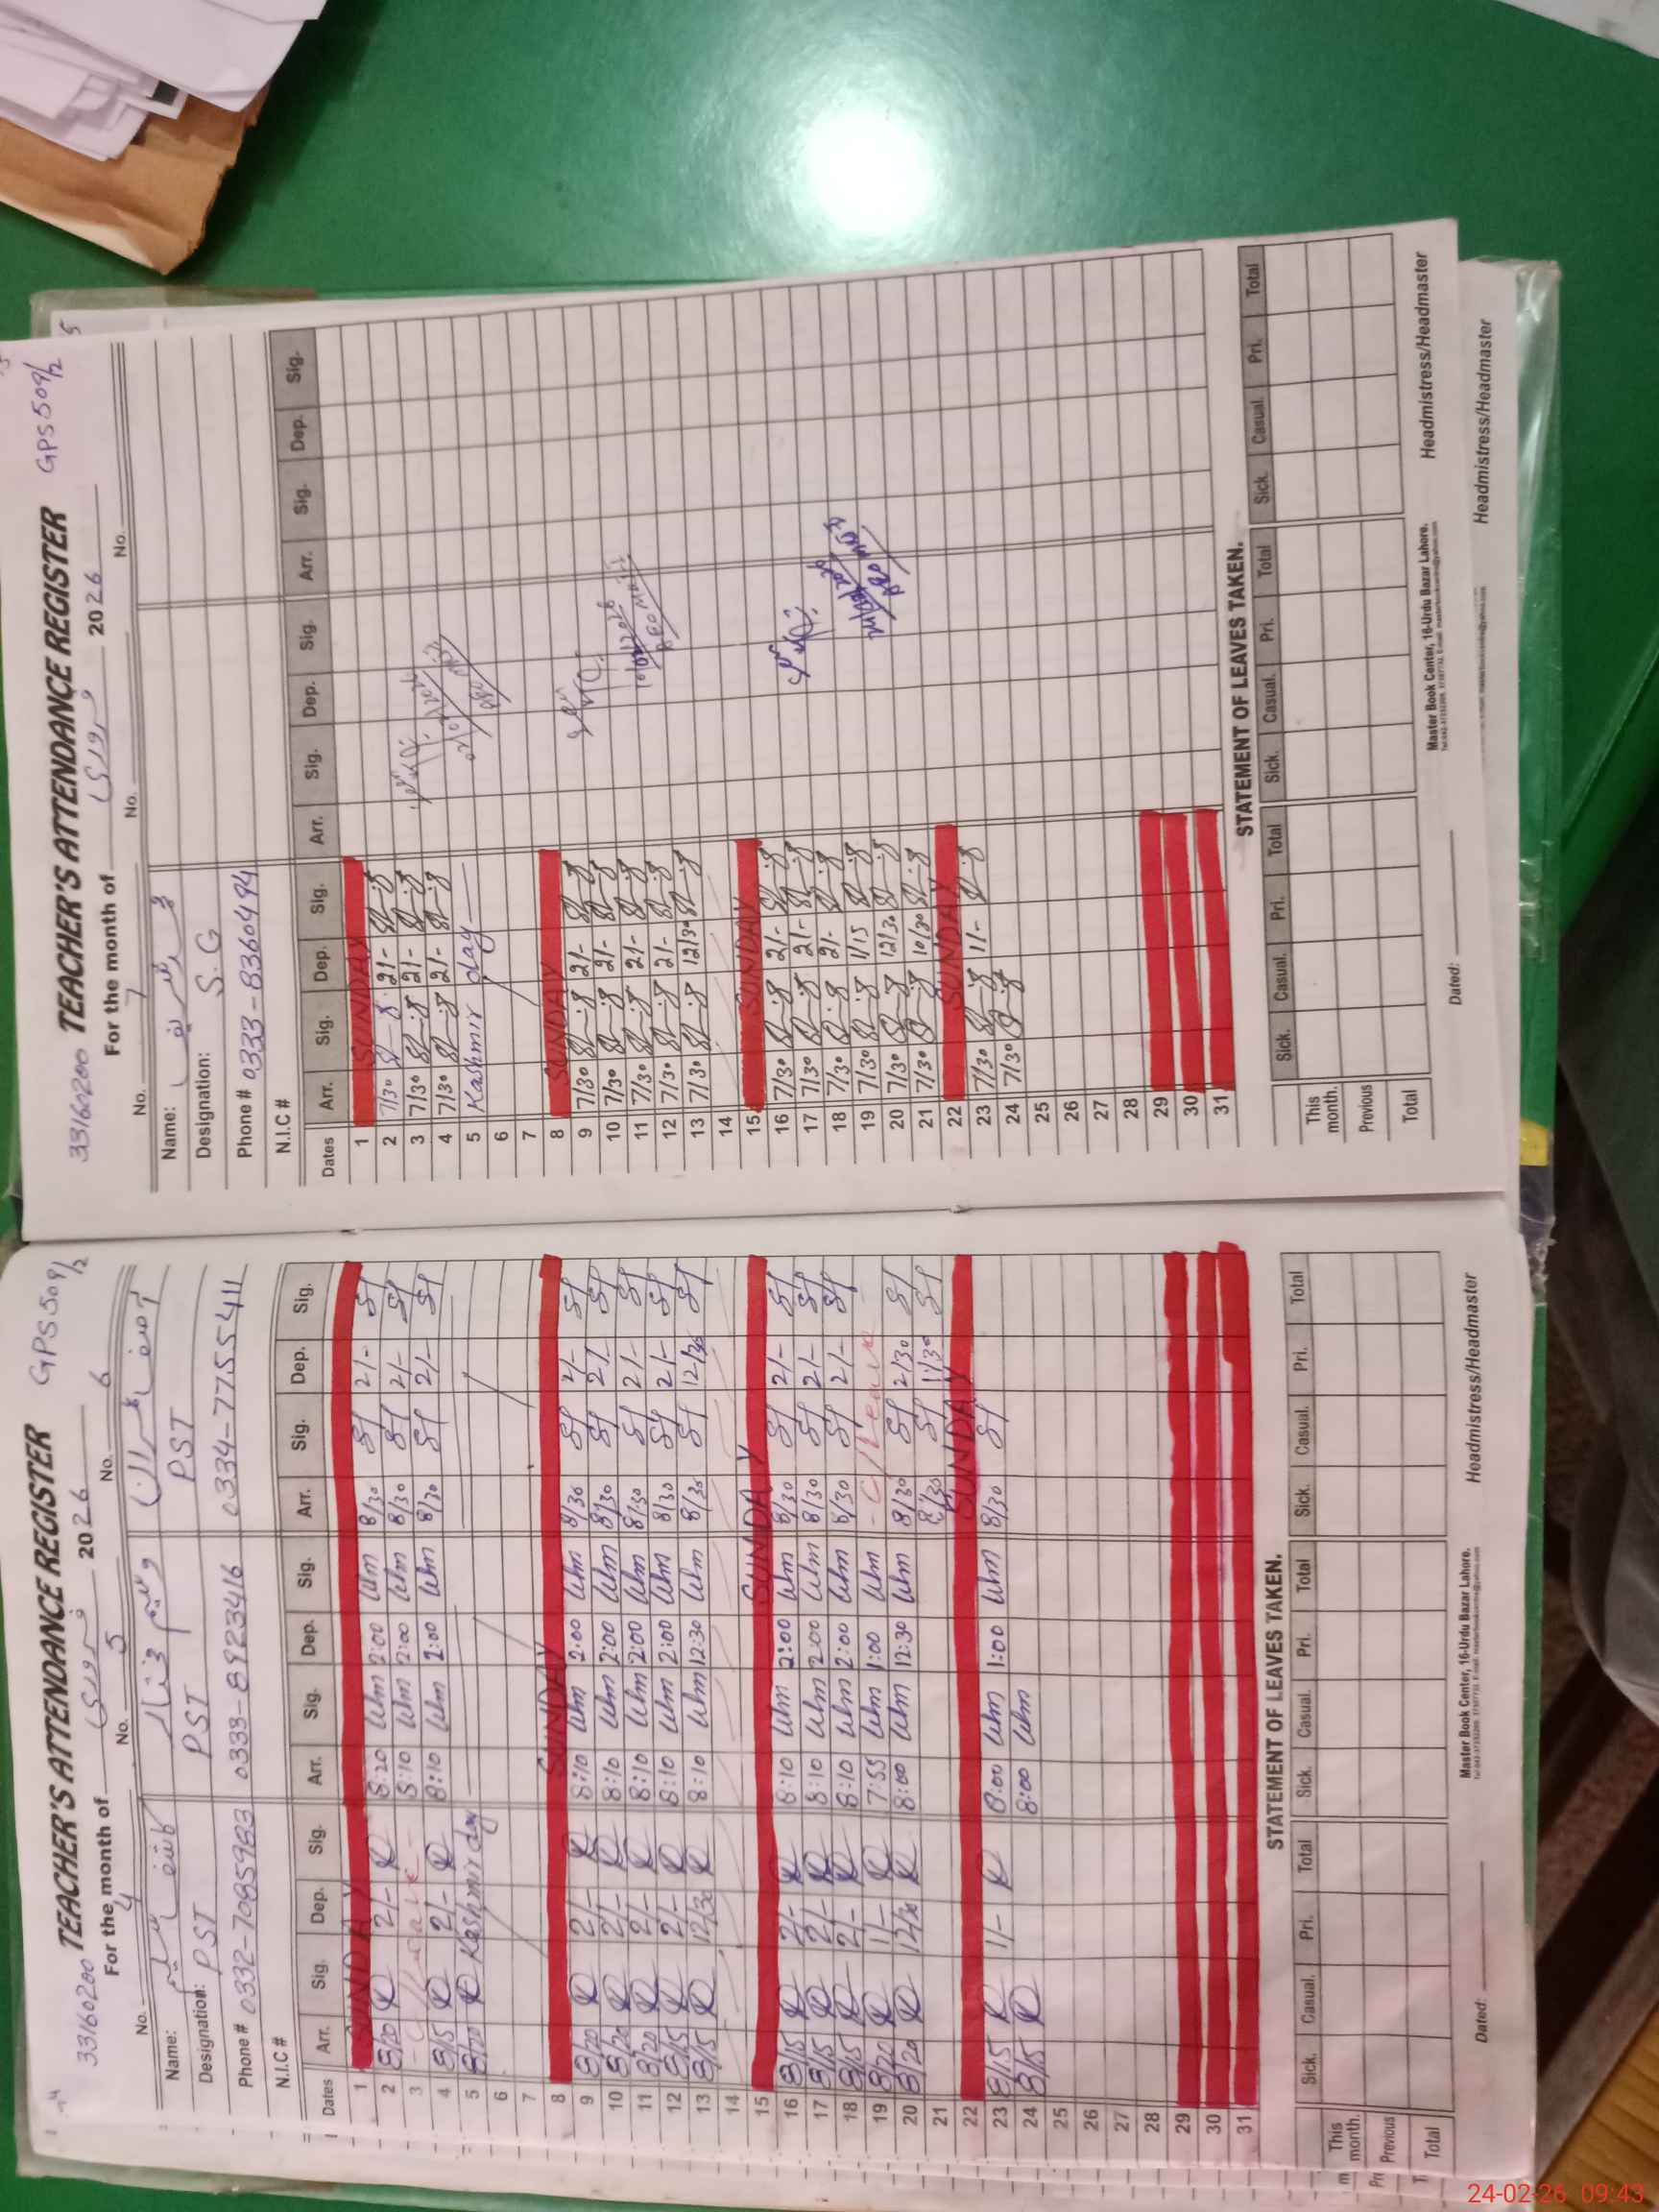 33160200 TEACHER'S ATTENDANCE REGISTER GPS 509/2
For the month of فروری 2026
No. 4 No. 5 No. 6
Name: کاشف سلیم وسیم مختار آصف
Designation: PST PST PST
Phone # 0332-7085983 0333-8923416 0334-7755411
N.I.C #
Dates Arr. Sig. Dep. Sig. Arr. Sig. Dep. Sig. Arr. Sig. Dep. Sig.
1 SUNDAY
2 8/20 2/- 8:20 Wm 2:00 Wm 8/30 2/-
3 C/Leave 8:10 Wm 2:00 Wm 8/30 2/-
4 8/15 2/- 8:10 Wm 2:00 Wm 8/30 2/-
5 8/20 Kashmir day
6
7
8 SUNDAY
9 8/20 2/- 8:10 Wm 2:00 Wm 8/30 2/-
10 8/20 2/- 8:10 Wm 2:00 Wm 8/30 2/-
11 8/20 2/- 8:10 Wm 2:00 Wm 8/30 2/-
12 8/15 2/- 8:10 Wm 2:00 Wm 8/30 2/-
13 8/15 12/30 8:10 Wm 12:30 Wm 8/30 12/30
14
15 SUNDAY
16 8/15 2/- 8:10 Wm 2:00 Wm 8/30 2/-
17 8/15 2/- 8:10 Wm 2:00 Wm 8/30 2/-
18 8/15 2/- 8:10 Wm 2:00 Wm 8/30 2/-
19 8/20 1/- 7:55 Wm 1:00 Wm - C/Leave
20 8/20 12/30 8:00 Wm 12:30 Wm 8/30 2/30
21 8/30 11/30
22 SUNDAY
23 8/15 1/- 8:00 Wm 1:00 Wm 8/30
24 8/15 8:00 Wm
25
26
27
28
29
30
31
STATEMENT OF LEAVES TAKEN.
Sick. Casual. Pri. Total Sick. Casual. Pri. Total Sick. Casual. Pri. Total
This month.
Previous
Total
Master Book Center, 16-Urdu Bazar Lahore.
Dated: Headmistress/Headmaster
33160200 TEACHER'S ATTENDANCE REGISTER GPS 509/2
For the month of فروری 2026
No. 7 No. No.
Name: محمد شریف
Designation: S.G
Phone # 0333-8360494
N.I.C #
Dates Arr. Sig. Dep. Sig. Arr. Sig. Dep. Sig. Arr. Sig. Dep. Sig.
1 SUNDAY
2 7/30 2/-
3 7/30 2/-
4 7/30 2/-
5 Kashmir day
6
7
8 SUNDAY
9 7/30 2/-
10 7/30 2/-
11 7/30 2/-
12 7/30 2/-
13 7/30 12/30
14
15 SUNDAY
16 7/30 2/-
17 7/30 2/-
18 7/30 2/-
19 7/30 1/15
20 7/30 12/30
21 7/30 10/30
22 SUNDAY
23 7/30 11/-
24 7/30
25
26
27
28
29
30
31
STATEMENT OF LEAVES TAKEN.
Sick. Casual. Pri. Total Sick. Casual. Pri. Total Sick. Casual. Pri. Total
This month.
Previous
Total
Master Book Center, 16-Urdu Bazar Lahore.
Dated: Headmistress/Headmaster
Headmistress/Headmaster
24-02-26 09:43